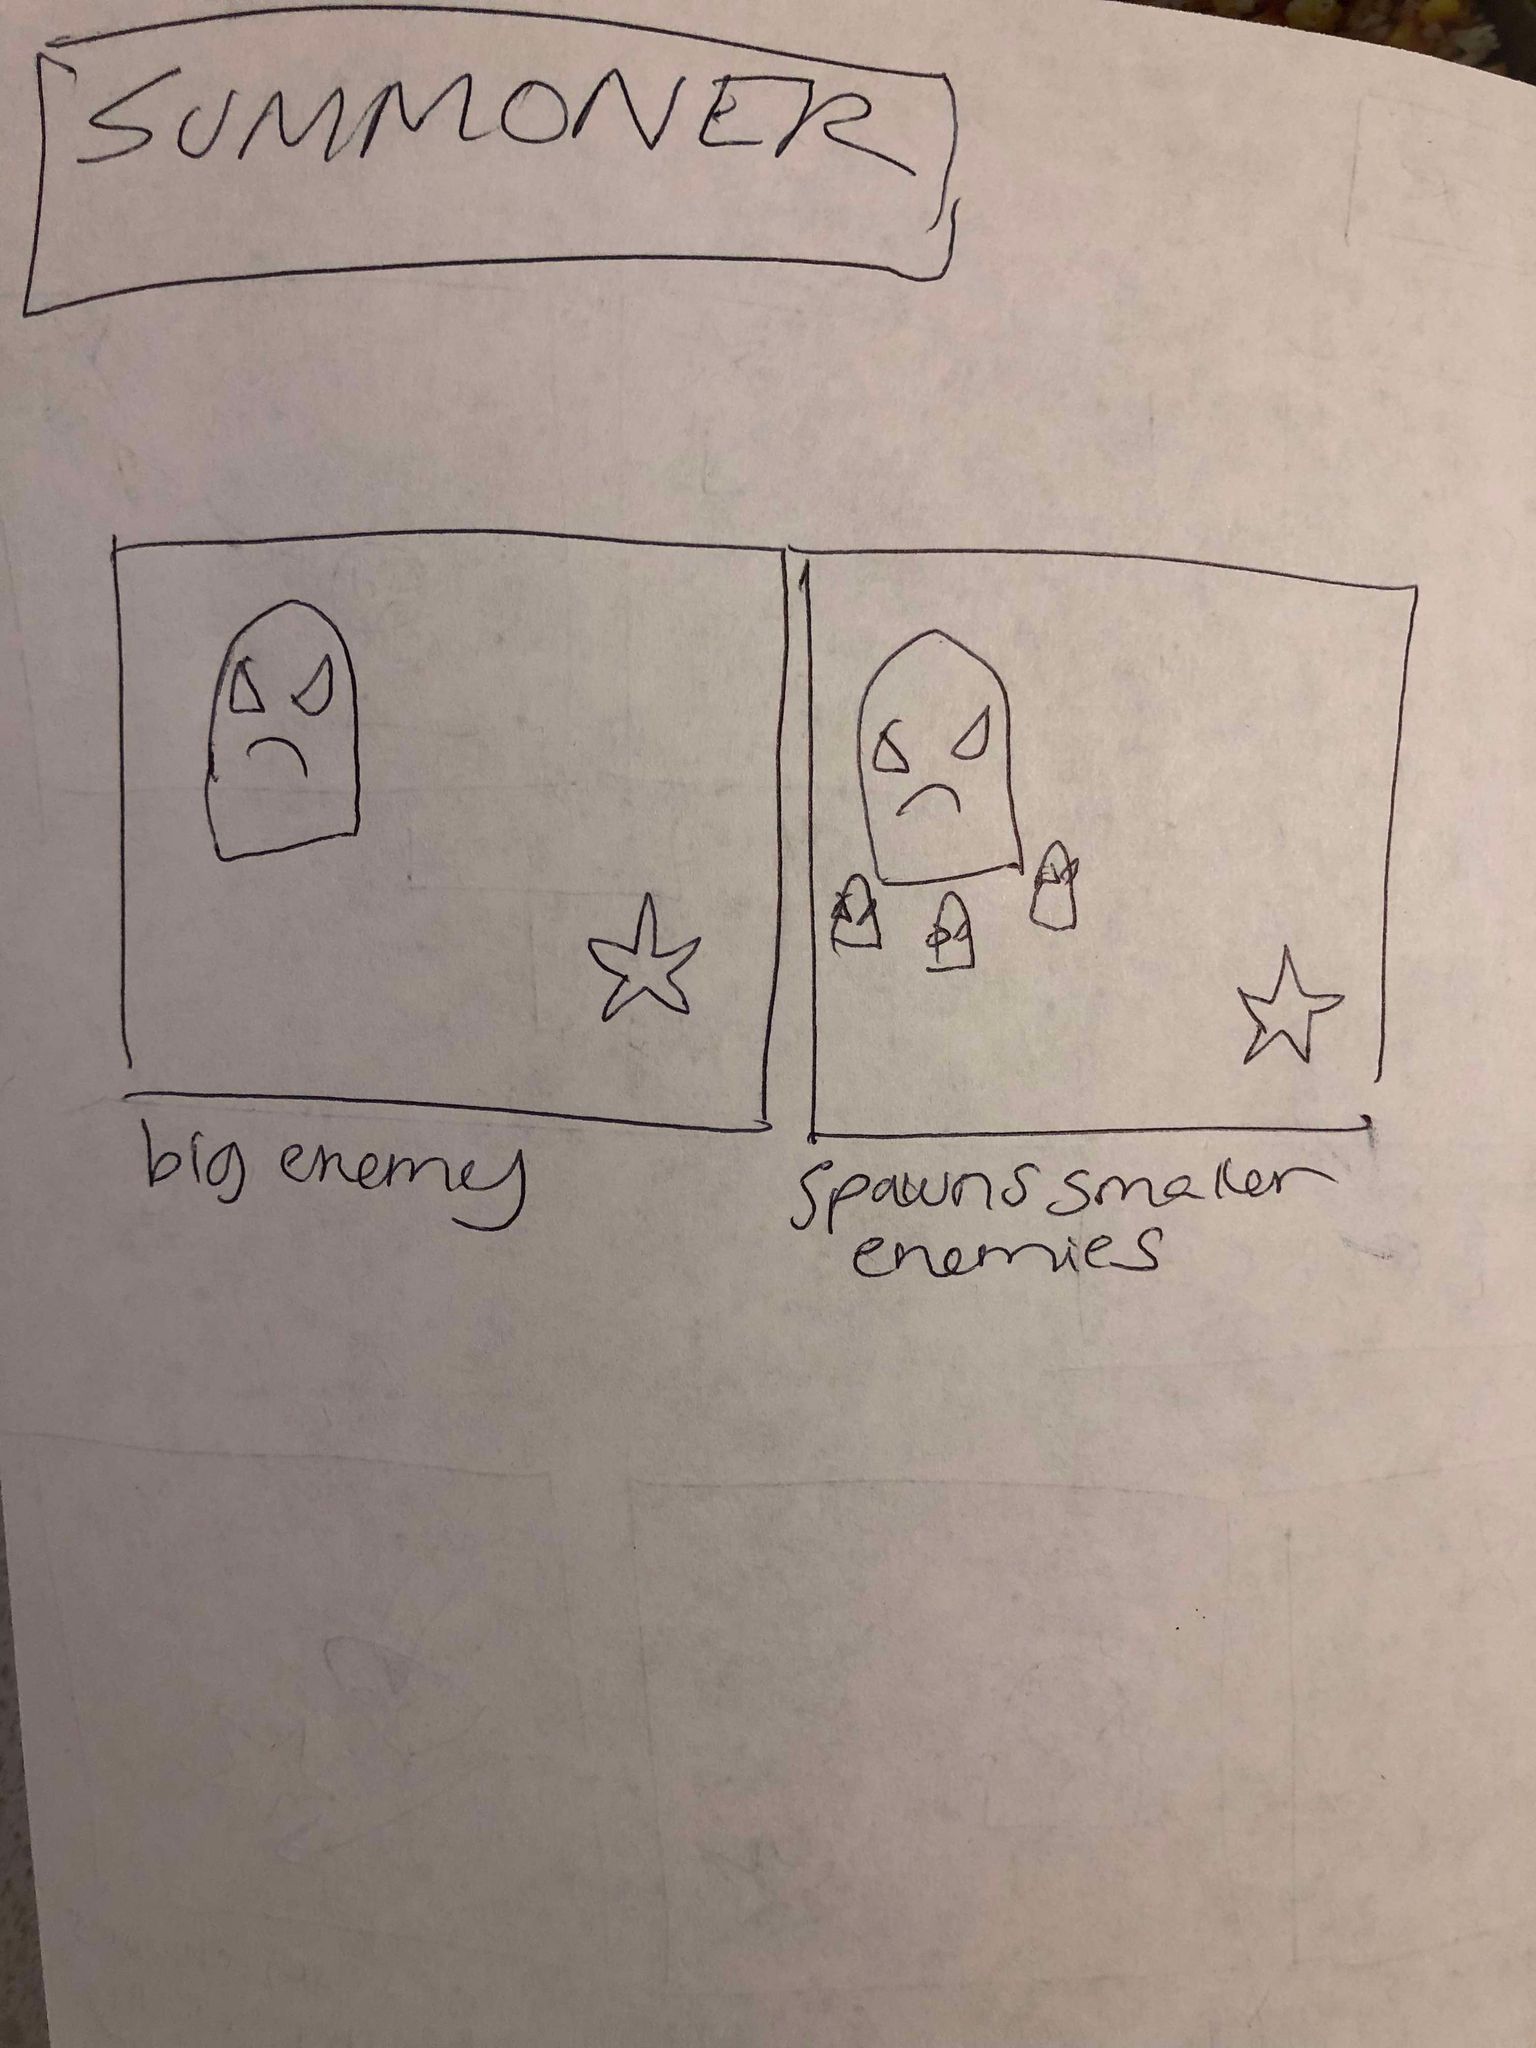 SUMMONER
big enemy
spawns smaller
enemies